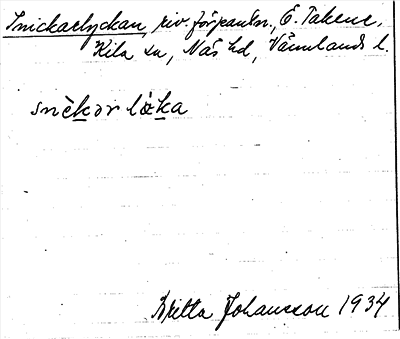 Snickarlyckan, riv. förpantn., Ö. Takene,
Kila sn, Näs hd, Värmlands l.
snèkor lø̀ka
Britta Johansson 1934